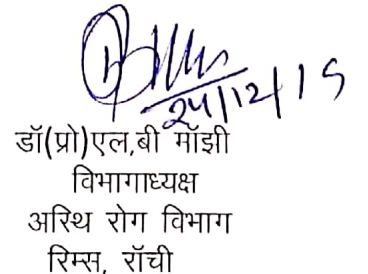 24/12/19
डॉ(प्रो)एल,बी मॉझी
विभागाध्यक्ष
अस्थि रोग विभाग
रिम्स, रॉची